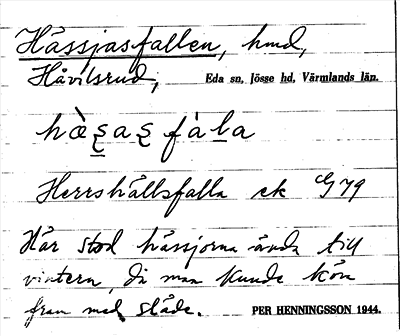 Hässjasfallen, hmd,
Hävilsrud, Eda sn, Jösse hd, Värmlands län.
hæ̀ʂaʂ fàla
Herrshällsfalla ek G79
Här stod hässjorna ända till
vintern, då man kunde köra
fram med släde. PER HENNINGSSON 1944.